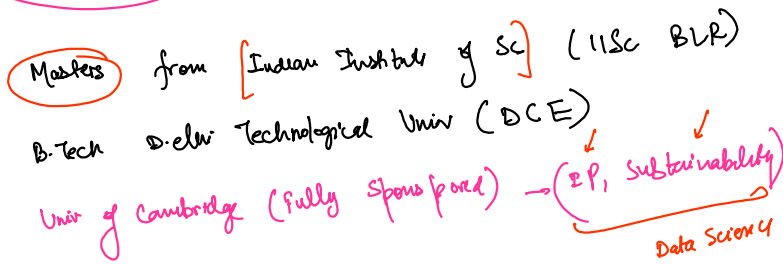 Masters from [Indian Institute of Sc] (IISc BLR)
B.Tech Delhi Technological Univ (DCE)
Univ of Cambridge (Fully Sponsored) → (IP, Sustainability)
Data Science